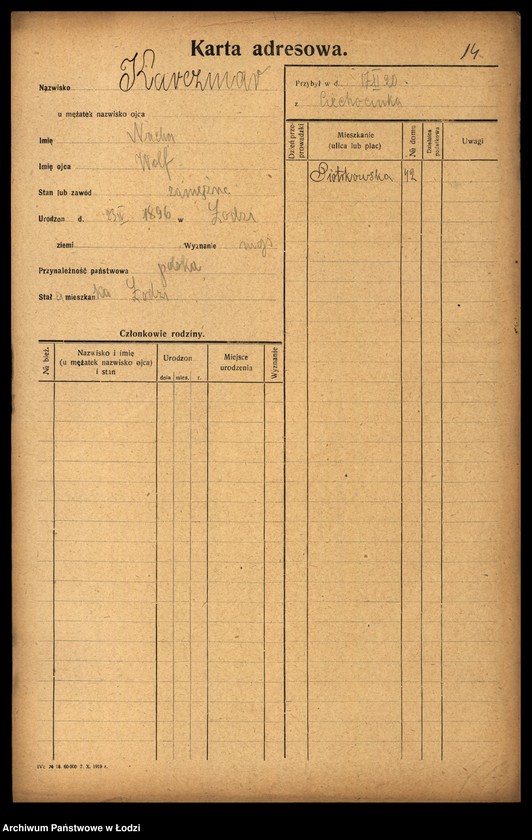 Karta adresowa.
14.
Nazwisko Karczmar
u mężatek nazwisko ojca
Imię
Imię ojca Wolf
Stan lub zawód zamężna
Urodzon d. 1896 w Łodzi
ziemi Wyznanie mojż
Przynależność państwowa polska
Stał a mieszkan ka Łodzi
Członkowie rodziny.
№ bież.
Nazwisko i imię
(u mężatek nazwisko ojca)
i stan
Urodzon
dnia mies. r.
Miejsce
urodzenia
Wyznanie
Przybył w d. 17 II 20.
z Ciechocinka
Dzień prze-
prowadzki
Mieszkanie
(ulica lub plac)
№ domu
Dzielnica
podatkowa
Uwagi
Piotrkowska 42
Archiwum Państwowe w Łodzi